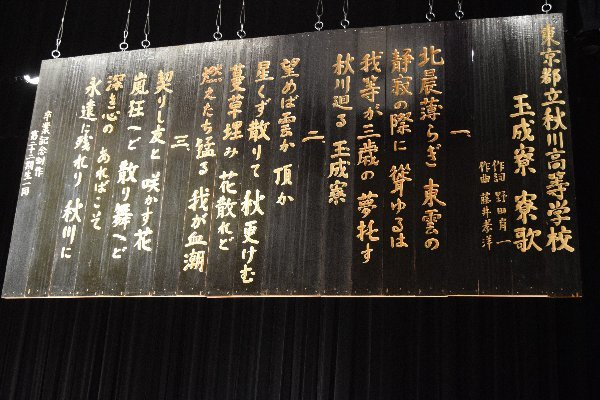 東京都立秋川高等学校
玉成寮 寮歌
作詞 野田育一
作曲 藤井孝洋
一、
北晨薄らぎ 東雲の
静寂の際に 聳ゆるは
我等が三歳の 夢托す
秋川廻る 玉成寮
二、
望めば雲か 頂か
星くず散りて 秋更けむ
蔓草埋み 花散れど
燃えたち猛る 我が血潮
三、
契りし友と 咲かす花
嵐狂へど 散り舞へど
深き心の あればこそ
永遠に残れり 秋川に
卒業記念制作
第二十二期生一同